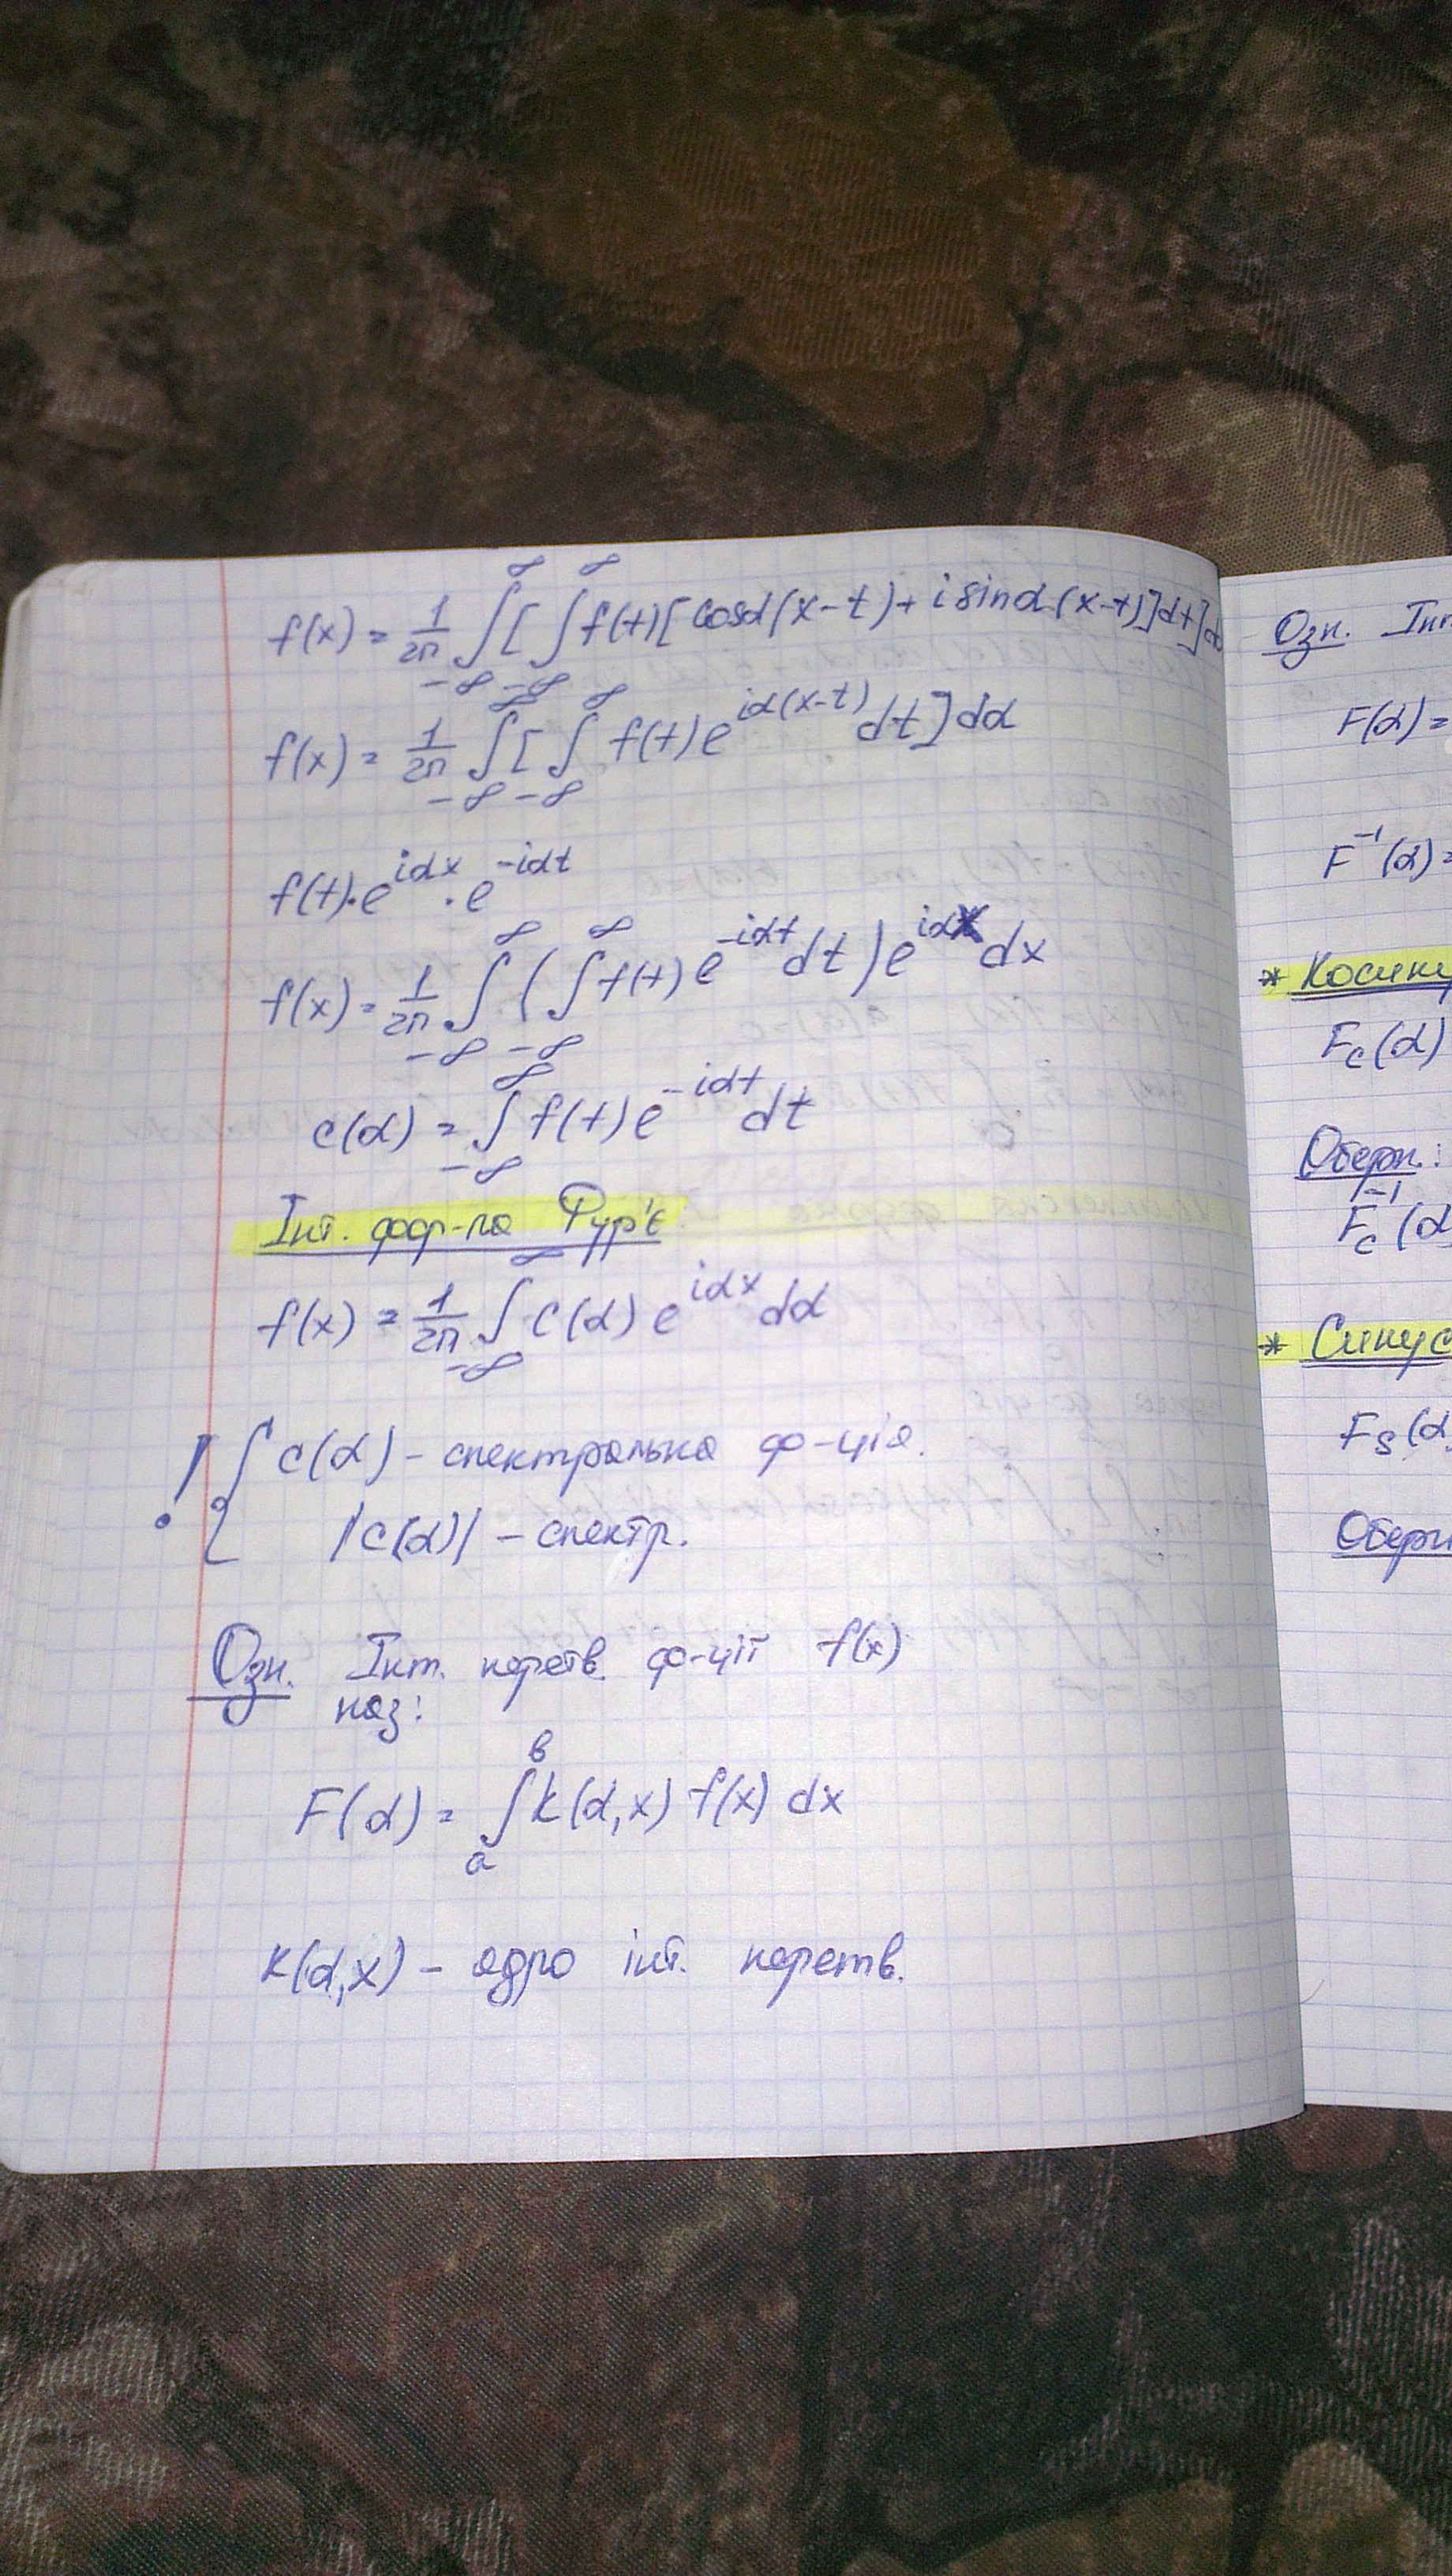 f(x) = 1/2π ∫_{-∞}^{∞} [ ∫_{-∞}^{∞} f(t) [ cosα(x-t) + i sinα(x-t) ] dt ] d
f(x) = 1/2π ∫_{-∞}^{∞} [ ∫_{-∞}^{∞} f(t) e^{iα(x-t)} dt ] dα
f(t)·e^{iαx} · e^{-iαt}
f(x) = 1/2π ∫_{-∞}^{∞} ( ∫_{-∞}^{∞} f(t) e^{-iαt} dt ) e^{iαx} dx
c(α) = ∫_{-∞}^{∞} f(t) e^{-iαt} dt
Інт. фор-ла Фур'є
f(x) = 1/2π ∫_{-∞}^{∞} C(α) e^{iαx} dα
! { c(α) – спектральна ф-ція.
|c(α)| – спектр.
Озн. Інт. перетв. ф-ції f(x)
наз:
F(α) = ∫_{a}^{b} k(α,x) f(x) dx
k(α,x) – ядро інт. перетв.
Озн. Інт
F(α) =
F^{-1}(α) =
* Косину
F_c(α)
Оберн.:
F_c^{-1}(α
* Синус
F_s(α
Оберн